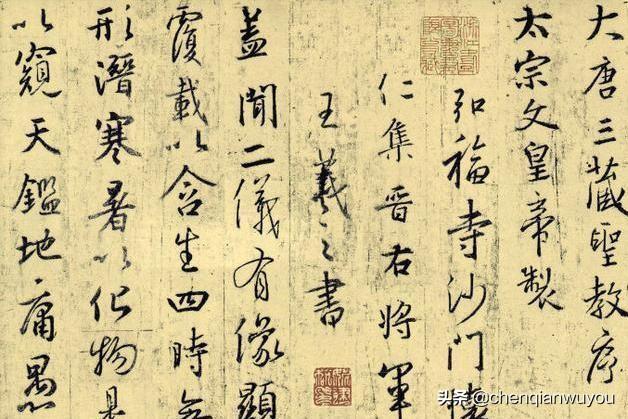 大唐三藏聖教序
太宗文皇帝製
弘福寺沙門
仁集晉右將軍
王羲之書
蓋聞二儀有像顯
覆載以含生四時無
形潛寒暑以化物是
以窺天鑑地庸愚
头条 @chenqianwuyou